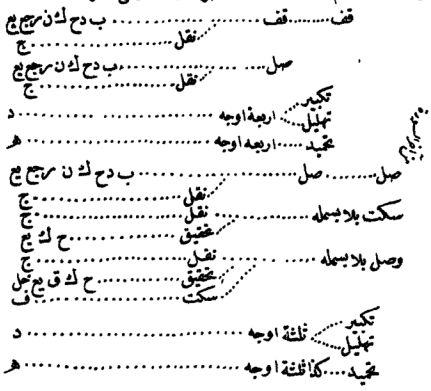 قف ........ قف .................. ب د ح ك ن رجع يع
نقل .................. ج
صل .................. ب د ح ك ن رجع يع
نقل .................. ج
تكبير
تهليل ...... اربعة اوجه .................. د
تحميد ..... اربعه اوجه .................. هـ
صل ........ صل .................. ب د ح ك ن رجع يع
نقل .................. ج
سكت بلا بسمله .......... نقل .................. ج
تحقيق .................. ح ك يع
وصل بلا بسمله .......... نقل .................. ج
تحقيق .................. ح ك ق يع خل
سكت .................. ف
تكبير
تهليل ...... ثلثة اوجه .................. د
تحميد .... كذا ثلثة اوجه .................. هـ